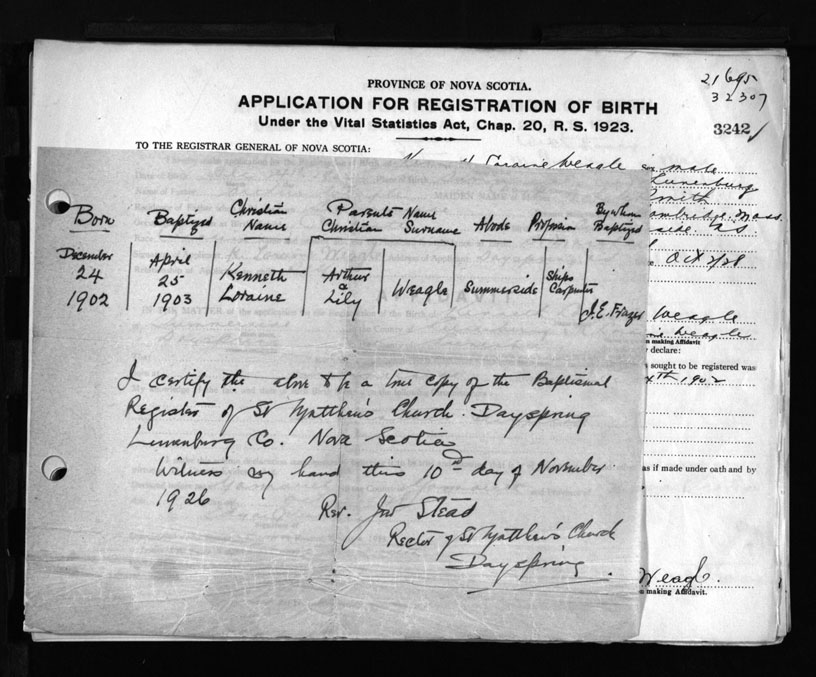 21695
32307
PROVINCE OF NOVA SCOTIA.
APPLICATION FOR REGISTRATION OF BIRTH
Under the Vital Statistics Act, Chap. 20, R. S. 1923.
3242
TO THE REGISTRAR GENERAL OF NOVA SCOTIA:
Loraine Weagle male
Lunenburg
Smith
Cambridge, Mass.
side NS
Oct 2/28
Born Baptized Christian Name Parents Name Christian Surname Abode Profession By whom Baptized
December 24 1902 April 25 1903 Kenneth Loraine Arthur & Lily Weagle Summerside Ships Carpenter J. E. Frazer
Weagle
Weagle
making Affidavit
declare:
sought to be registered was
1902
I certify the above to be a true copy of the Baptismal
Register of St Matthew's Church. Dayspring
Lunenburg Co. Nova Scotia
Witness my hand this 10th day of November
1926
as if made under oath and by
Rev. Jno Stead
Rector of St Matthew's Church
Dayspring
Weagle
making Affidavit.